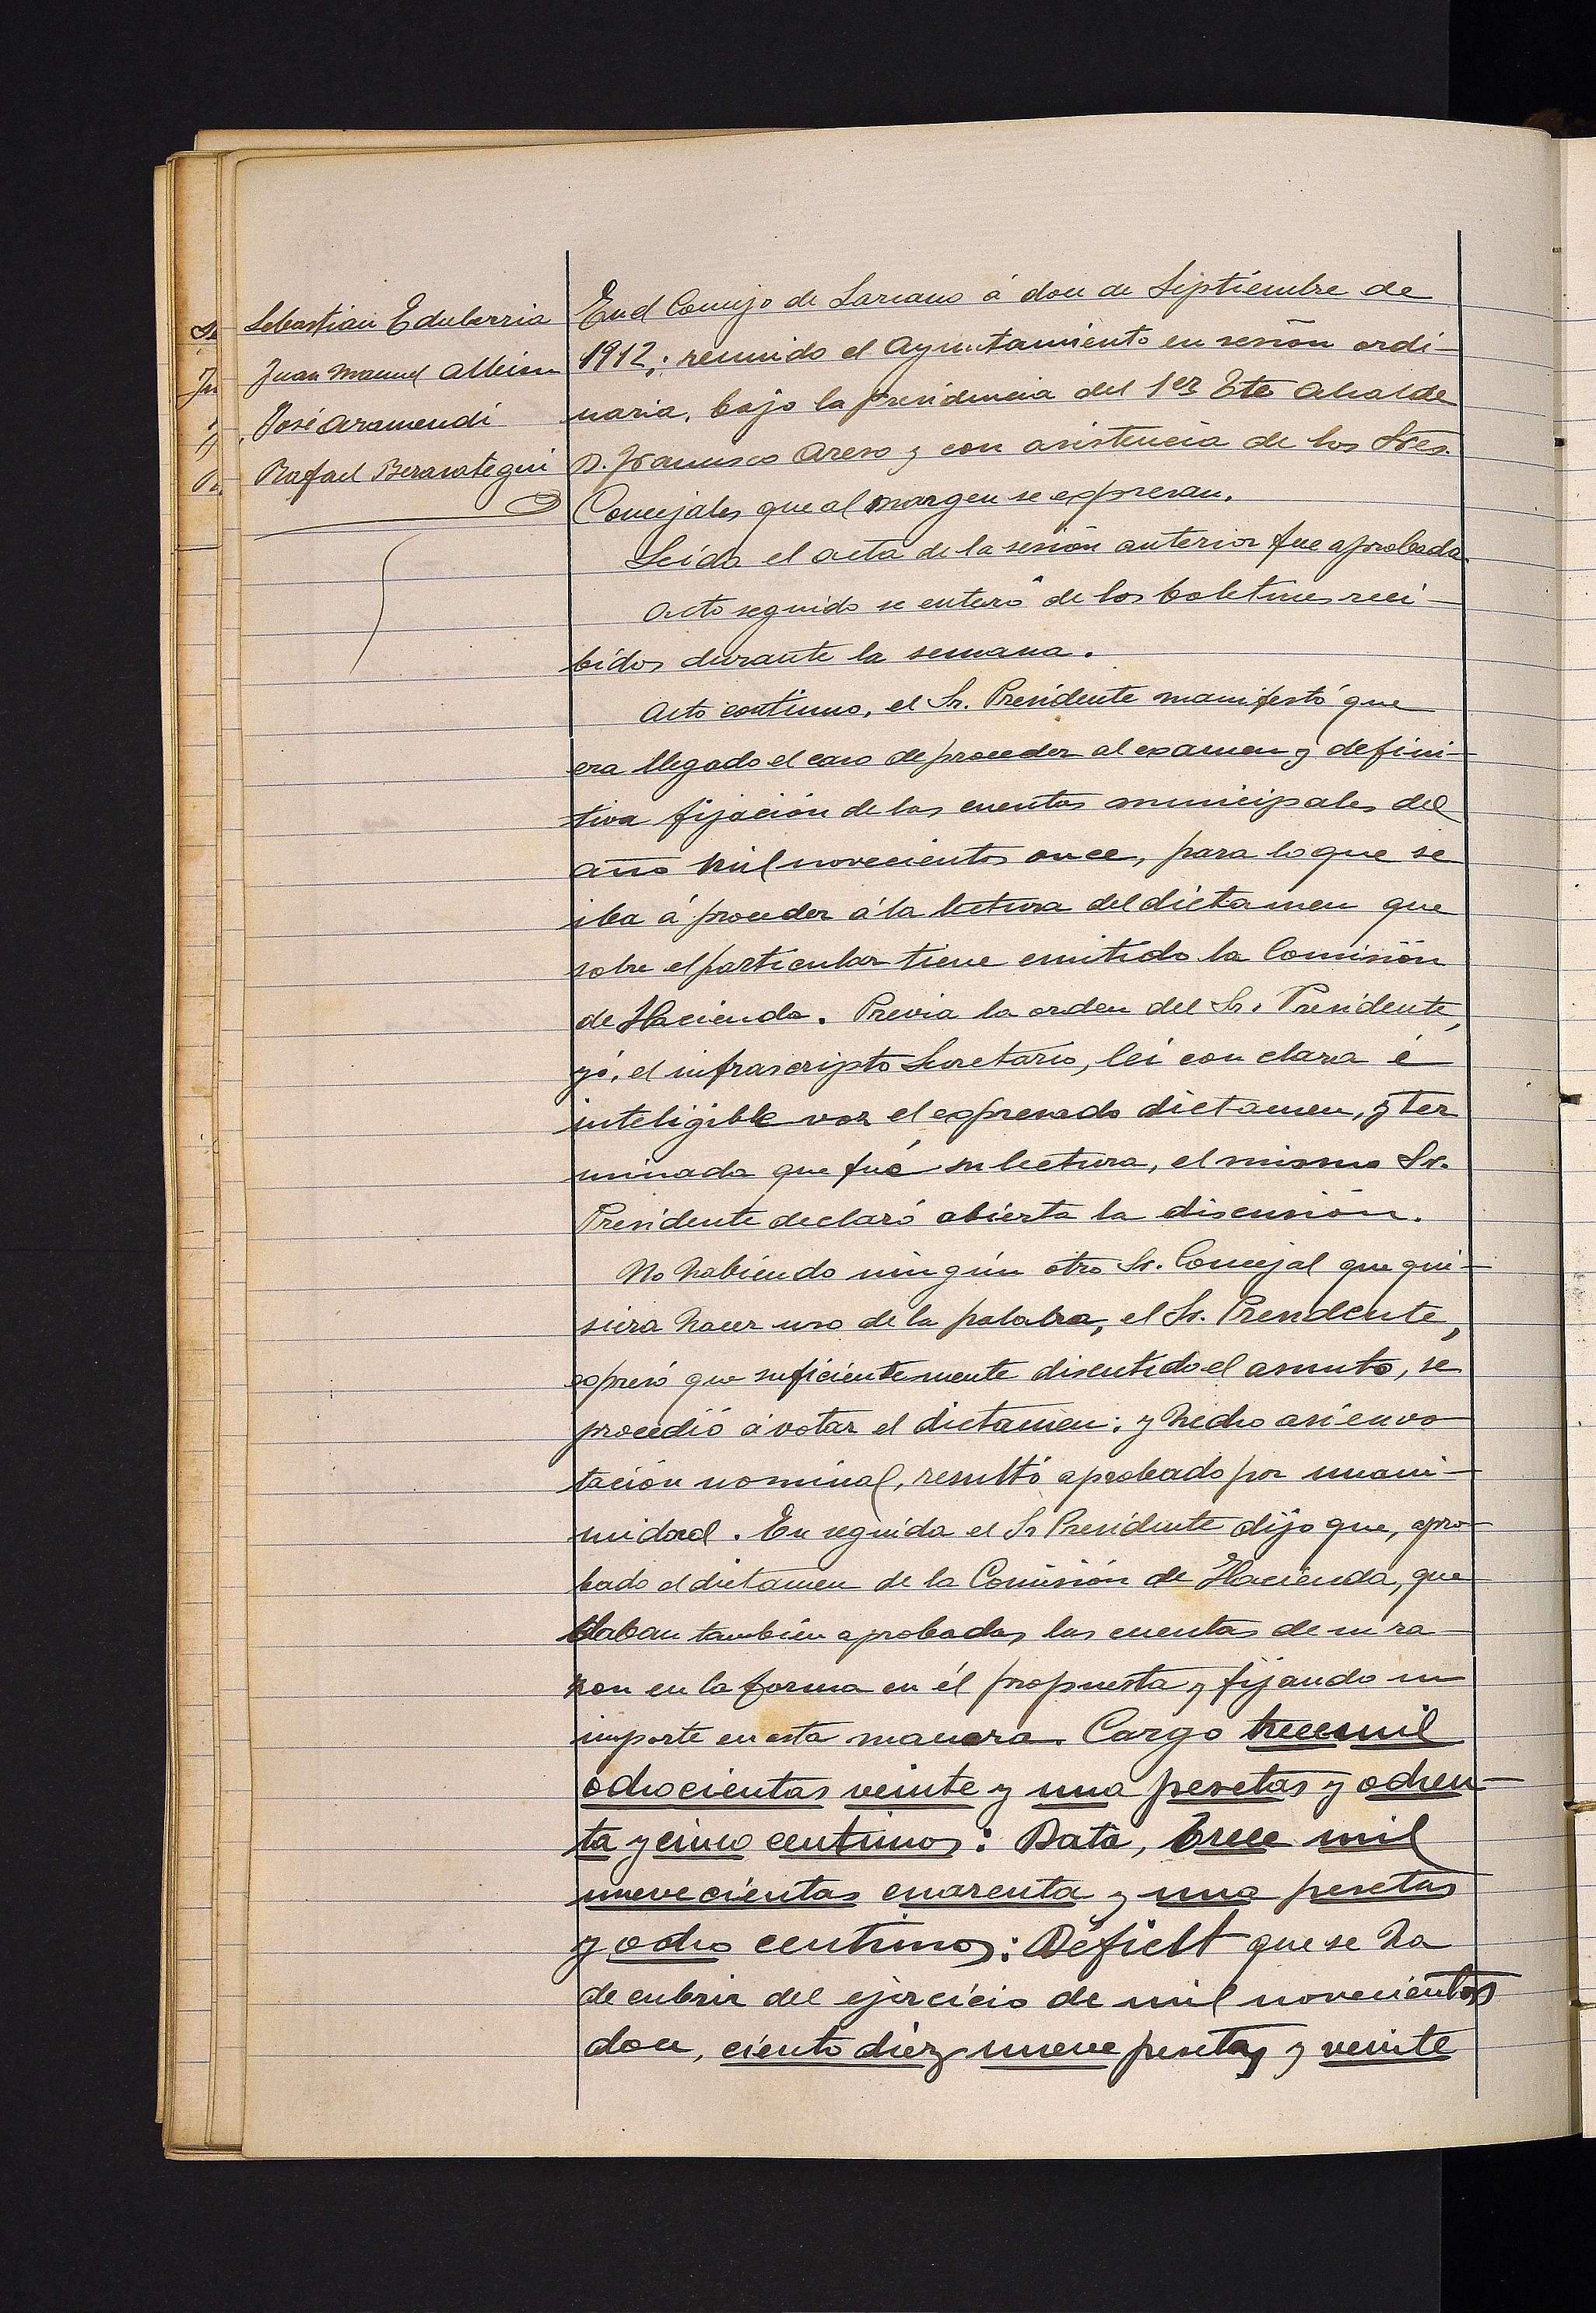 Sebastian Echeberria
Juan Manuel Albisu
José Aramendi
Rafael Berasategui
En el Concejo de Lazcano á doce de Septiembre de
1912; reunido el Ayuntamiento en sesión ordi-
naria, bajo la presidencia del 1er Tte Alcalde
D. Francisco Areso y con asistencia de los Sres.
Concejales que al margen se expresan.
Leida el acta de la sesión anterior fue aprobada.
Acto seguido se enteró de los boletines reci-
bidos durante la semana.
Acto continuo, el Sr. Presidente manifestó que
era llegado el caso de proceder al examen y defini-
tiva fijación de las cuentas municipales del
año mil novecientos once, para lo que se
iba á proceder á la lectura del dictamen que
sobre el particular tiene emitido la Comisión
de Hacienda. Previa la orden del Sr. Presidente,
yó, el infrascripto Secretario, leí con clara é
inteligible voz el expresado dictamen, y ter
minada que fué su lectura, el mismo Sr.
Presidente declaró abierta la discusión.
No habiendo ningún otro Sr. Concejal que qui-
siera hacer uso de la palabra, el Sr. Presidente,
expresó que suficientemente discutido el asunto, se
procedió á votar el dictamen; y hecho así en vo
tación nominal, resultó aprobado por unani-
midad. En seguida el Sr Presidente dijo que, apro-
bado el dictamen de la Comisión de Hacienda, que
daban también aprobadas las cuentas de su ra-
zon en la forma en él propuesta y fijando su
importe en esta manera. Cargo trece mil
ochocientas veinte y una pesetas y ochen-
ta y cinco centimos: Data, trece mil
nuevecientas cuarenta y una pesetas
y ocho centimos: Déficit que se ha
de cubrir del ejercicio de mil novecientos
doce, ciento diez nueve pesetas y veinte